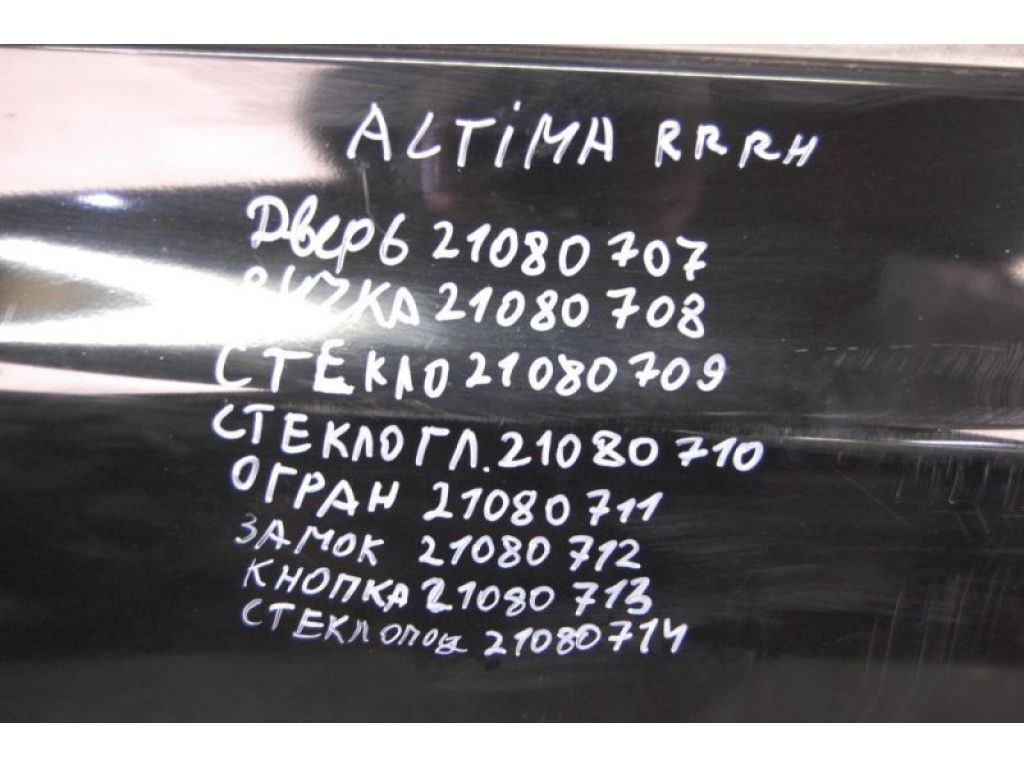 ALTiMA RRRH
Дверь 21080707
21080708
СТЕКЛО 21080709
СТЕКЛО ГЛ. 21080710
ОГРАН 21080711
ЗАМОК 21080712
КНОПКА 21080713
21080714